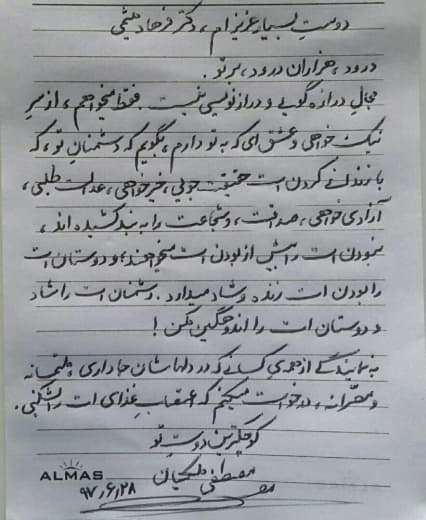 دوستِ بسیار عزیزام، دکتر فرهاد میثمی
درود، هزاران درود، بر تو.
مجالِ درازه گویی و درازنویسی نیست. فقط میخواهم، از سرِ
نیک خواهی و عشق ای که به تو دارم، بگویم که دشمنانِ تو، که
با زندانی کردن ات حقیقت جویی، خیرخواهی، عدالت طلبی،
آزادی خواهی، صداقت، و شجاعت را به بند کشیده اند،
نبودن ات را بیش از بودن ات میخواهند، و دوستان ات
را بودن ات زنده و شاد میدارد. دشمنان ات را شاد
و دوستان ات را اندوهگین مکن!
به نمایندگی از همه ی کسانی که در دلهاشان جا داری، ملتمسانه
و مصرّانه، درخواست میکنم که اعتصابِ غذای ات را بشکنی.
کوچکترین دوستِ تو
مصطفی ملکیان
۹۷٫۶٫۲۸
ALMAS